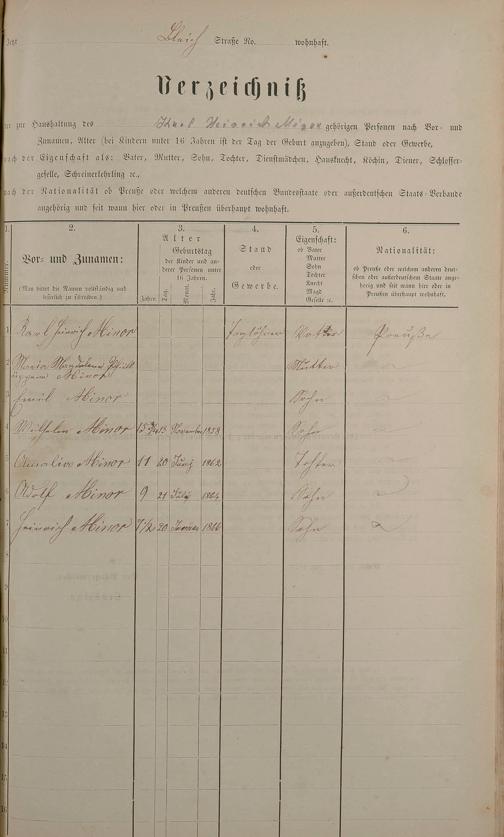 Jetzt Bleich Straße No. wohnhaft.
Verzeichniß
der zur Haushaltung des Karl Heinrich Minor gehörigen Personen nach Vor- und
Zunamen, Alter (bei Kindern unter 16 Jahren ist der Tag der Geburt anzugeben), Stand oder Gewerbe,
nach der Eigenschaft als: Vater, Mutter, Sohn, Tochter, Dienstmädchen, Hausknecht, Köchin, Diener, Schlosser-
geselle, Schreinerlehrling ec.,
nach der Nationalität ob Preuße oder welchem anderen deutschen Bundesstaate oder außerdeutschen Staats-Verbande
angehörig und seit wann hier oder in Preußen überhaupt wohnhaft.
1. 2. 3. 4. 5. 6.
Nummer.
Vor- und Zunamen:
(Man bittet die Namen vollständig und
leserlich zu schreiben.)
Alter
Geburtstag
der Kinder und an-
derer Personen unter
16 Jahren.
Jahre. Tag. Monat. Jahr.
Stand
oder
Gewerbe.
Eigenschaft:
ob Vater
Mutter
Sohn
Tochter
Knecht
Magd
Geselle ec.
Nationalität:
ob Preuße oder welchem anderen deut-
schen oder außerdeutschen Staate ange-
hörig und seit wann hier oder in
Preußen überhaupt wohnhaft.
1 Karl Heinrich Minor Taglöhner Vatter Preuße
2 Maria Magdalena
Minor Mutter
3 Emil Minor Sohn
4 Wilhelm Minor 15 3/4 13 November 1858 Sohn
5 Amalie Minor 11 20 Juny 1862 Tochter
6 Adolf Minor 9 21 July 1864 Sohn
7 Heinrich Minor 7 1/2 20 Januar 1866 Sohn